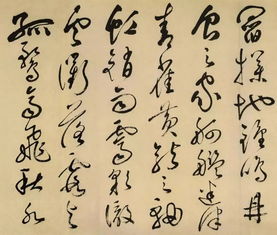 閻撲地鐘鳴鼎
食之家舸艦迷津
青雀黃龍之舳
虹銷雨霽彩徹
雲衢落霞與
孤鶩齊飛秋水